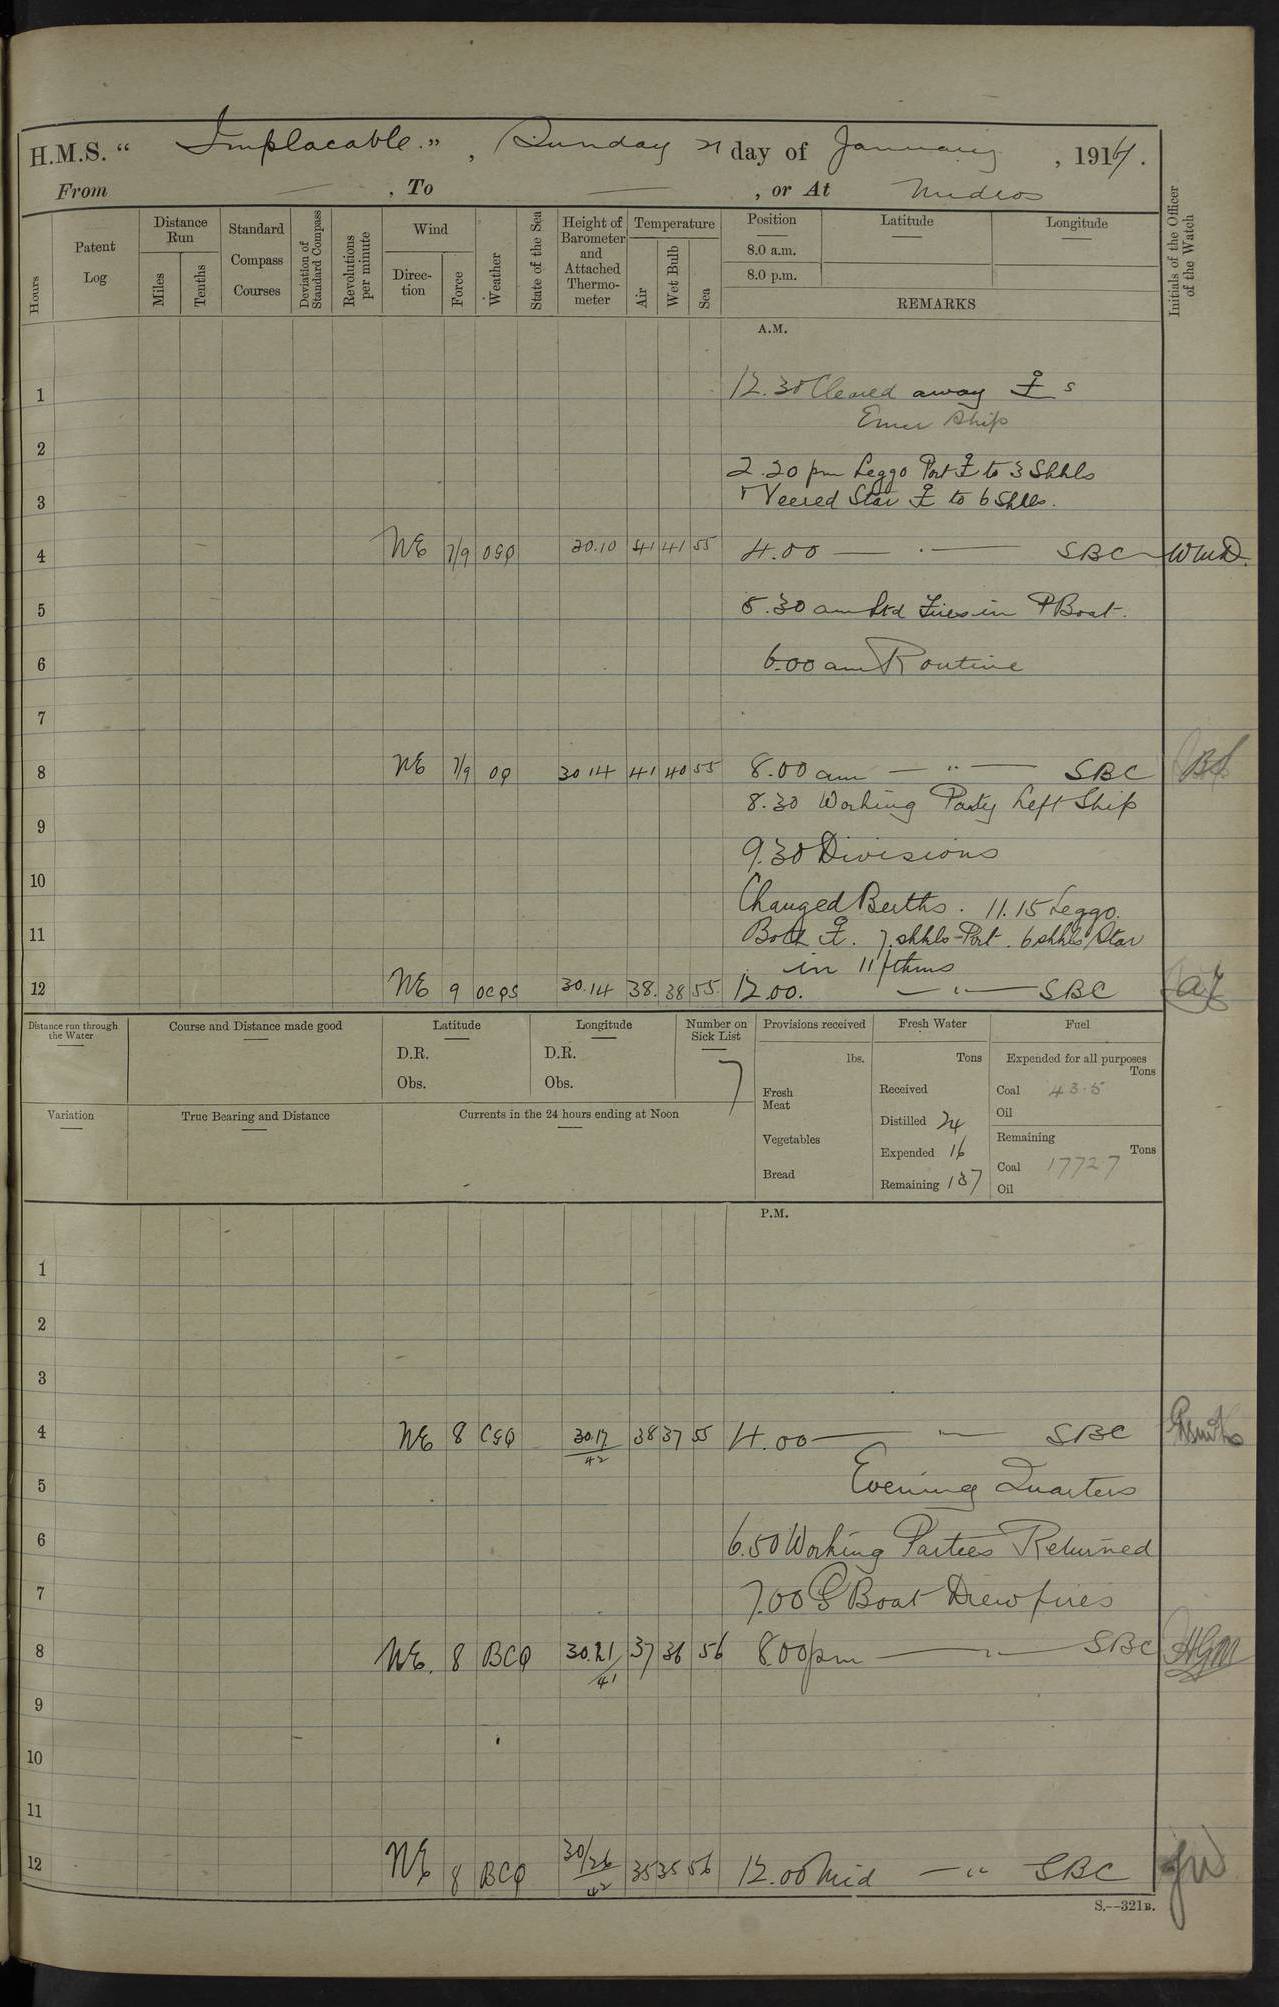 H.M.S. “ Implacable. ” , Sunday 21 day of January , 1917 .
From — , To — , or At Mudros
Hours
Patent Log
Distance Run
Miles
Tenths
Standard Compass Courses
Deviation of Standard Compass
Revolutions per minute
Wind
Direction
Force
Weather
State of the Sea
Height of Barometer and Attached Thermometer
Temperature
Air
Wet Bulb
Sea
Position
8.0 a.m.
8.0 p.m.
Latitude
Longitude
REMARKS
Initials of the Officer of the Watch
A.M.
1 12.30 Cleared away ⚓ s
Ship
2
2.20 pm Leggo Port ⚓ to 3 Shkls
3 Veered Star ⚓ to 6 Shkls.
4 NE 7/9 OGQ 30.10 41 41 55 4.00 — " — SBC
5 5.30 am Ltd Fires in P Boat.
6 6.00 am Routine
7
8 NE 7/9 OQ 30 14 41 40 55 8.00 am — " — SBC
8.30 Working Party Left Ship
9
9.30 Divisions
10
Changed Berths. 11.15 Leggo.
11 Both ⚓. 7 shkls Port. 6 shkls Star
in 11 fthms
12 NE 9 OCQS 30.14 38. 38 55. 12.00. — " — SBC
Distance run through the Water
Course and Distance made good
Latitude
D.R.
Obs.
Longitude
D.R.
Obs.
Number on Sick List
7
Provisions received
lbs.
Fresh Meat
Vegetables
Bread
Fresh Water
Tons
Received
Distilled 24
Expended 16
Remaining 137
Fuel
Expended for all purposes
Tons
Coal 43.5
Oil
Remaining
Tons
Coal 1772.7
Oil
Variation
True Bearing and Distance
Currents in the 24 hours ending at Noon
P.M.
1
2
3
4 NE 8 CGQ 30.17/42 38 37 55 4.00 — " — SBC
5 Evening Quarters
6 6.50 Working Parties Returned
7 7.00 Boat Drew fires
8 NE. 8 BCQ 30.21/41 37 36 56 8.00 pm — " — SBC HGM
9
10
11
12 NE 8 BCQ 30/26/42 35 35 56 12.00 Mid — " SBC
S.--321B.